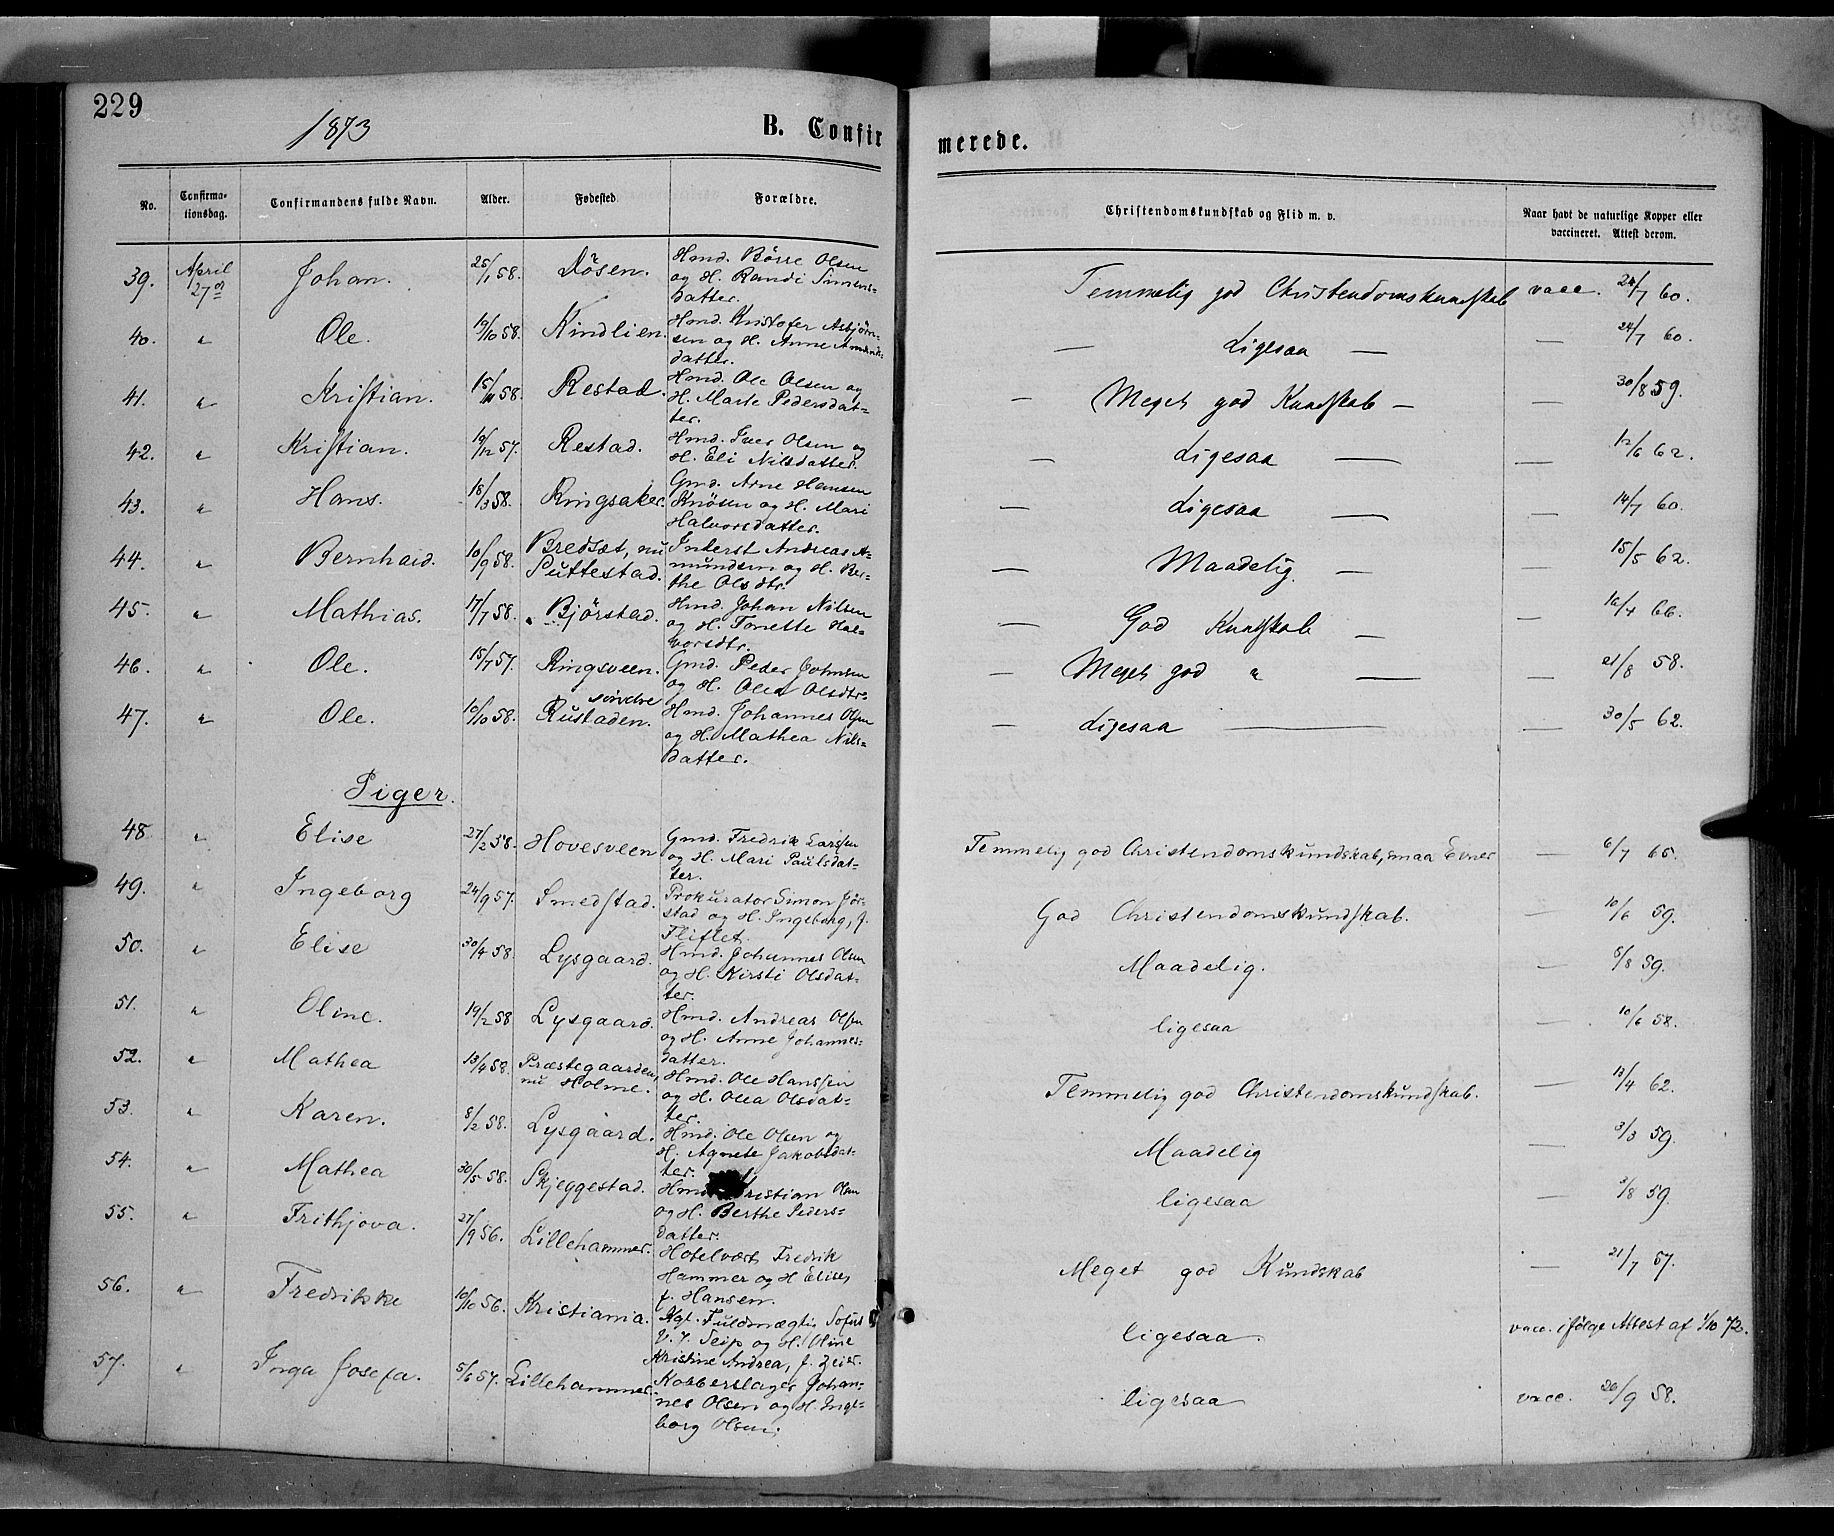 229
1873
B. Confir
merede.
No.
Confirma-
tionsdag.
Confirmandens fulde Navn.
Alder.
Fødested.
Forældre.
Christendomskundskab og Flid m. v.
Naar havt de naturlige Kopper eller
vaccineret. Attest derom.
39. April 27de Johan. 25/1 58. Døsen. Hmd. Børre Olsen
og H. Randi Simens-
datter.
Temmelig god Christendomskundskab vacc. 24/7 60.
40. " Ole. 19/10 58. Kindlien. Hmd. Kristofer Asbjørn-
sen og H. Anne
datter.
— Ligesaa — — 24/7 60.
41. " Kristian. 15/11 58. Restad. Hmd. Ole Olsen og
H. Marte Pedersdat-
ter.
— Meget god Kundskab — — 30/8 59.
42. " Kristian. 19/12 57. Restad. Hmd. Iver Olsen og
H. Eli Nilsdatter.
— Ligesaa — — 12/6 62.
43. " Hans. 18/3 58. Ringsaker. Gmd. Arne Hansen
Knøsen og H. Mari
Halvorsdatter.
— Ligesaa — — 14/7 60.
44. " Bernhard. 10/9 58. Bredsæt, nu
Suttestad. Inderst Andreas A-
mundsen og H. Ber-
the Olsdtr.
— Maadelig. — — 15/5 62.
45. " Mathias. 17/7 58. Bjørstad. Hmd. Johan Nilsen
og H. Tonette Hal-
vorsdtr.
— God Kundskab — — 16/4 66.
46. " Ole. 15/7 57. Ringsveen. Gmd. Peder Johnsen
og H. Olea Olsdtr.
— Meget god " — — 21/8 58.
47. " Ole. 10/10 58. søndre
Rustaden. Hmd. Johannes Olsen
og H. Mathea Nils-
datter.
— Ligesaa — — 30/5 62.
Piger.
48. " Elise 27/2 58. Hovesveen Gmd. Fredrik Larssen
og H. Mari Paulsdat-
ter.
Temmelig god Christendomskundskab, smaa Evner — 6/7 65.
49. " Ingeborg 24/9 57. Smedstad. Prokurator Simon Jør-
stad og H. Ingeborg, f.
Fliflet.
God Christendomskundskab. 10/6 59.
50. " Elise 30/4 58. Lysgaard. Hmd. Johannes Olsen
og H. Kirsti Olsdat-
ter.
Maadelig. — 5/8 59.
51. " Oline. 19/2 58 Lysgaard. Hmd. Andreas Olsen
og H. Anne Johannes-
datter.
ligesaa — 10/6 58.
52. " Mathea 13/4 58. Præstegaarden,
nu Holme. Hmd. Ole Hanssen
og H. Olea Olsdat-
ter.
Temmelig god Christendomskundskab. — 13/4 62.
53. " Karen. 8/2 58. Lysgaard. Hmd. Ole Olsen og
H. Agnete Jakobsdat-
ter.
Maadelig — 3/3 59.
54. " Mathea 30/5 58. Skjeggestad. Hmd. Kristian Olsen
og H. Berthe Peders-
datter.
ligesaa — 3/8 59.
55. " Frithjova. 27/9 56. Lillehammer. Hotelvært Fredrik
Hammer og H. Elise,
f. Hansen.
Meget god Kundskab — 21/7 57.
56. " Fredrikke 10/10 56. Kristiania. Kgl. Fuldmægtig Sofus
V. J. Seip og H. Oline
Kristine Andrea, f. Zeier.
ligesaa. vacc. ifølge Attest af 1/10 72.
57. " Inga Josefa. 5/6 57. Lillehammer. Kobberslager Johan-
nes Olsen og H. Inge-
borg Olsen.
ligesaa vacc. 20/9 58.